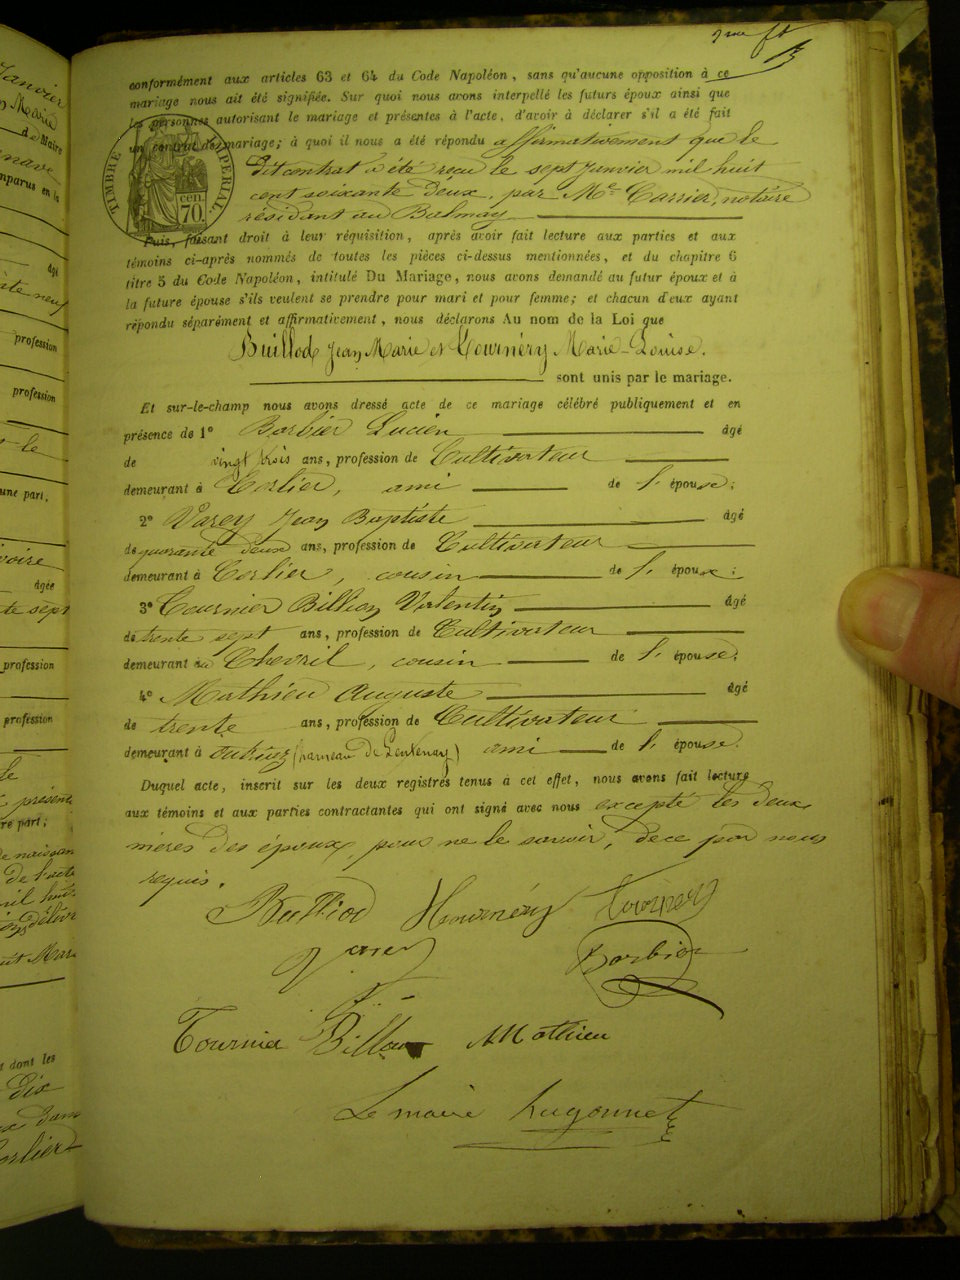 2me ft
conformément aux articles 63 et 64 du Code Napoléon, sans qu'aucune opposition à ce
mariage nous ait été signifiée. Sur quoi nous avons interpellé les futurs époux ainsi que
les personnes autorisant le mariage et présentes à l'acte, d'avoir à déclarer s'il a été fait
un contrat de mariage; à quoi il nous a été répondu affirmativement que le
dit contrat a été reçu le sept Janvier mil huit
cent soixante deux par Me Carrier, notaire
résidant au Balmay
TIMBRE IMPERIAL
cen.
70.
Puis, faisant droit à leur réquisition, après avoir fait lecture aux parties et aux
témoins ci-après nommés de toutes les pièces ci-dessus mentionnées, et du chapitre 6
titre 5 du Code Napoléon, intitulé Du Mariage, nous avons demandé au futur époux et à
la future épouse s'ils veulent se prendre pour mari et pour femme; et chacun d'eux ayant
répondu séparément et affirmativement, nous déclarons Au nom de la Loi que
Buillod Jean Marie et Tournéry Marie-Louise.
sont unis par le mariage.
Et sur-le-champ nous avons dressé acte de ce mariage célébré publiquement et en
présence de 1o Barbier Lucien âgé
de vingt trois ans, profession de Cultivateur
demeurant à Corlier, ami de l'épouse;
2o Varey Jean Baptiste âgé
de quarante deux ans, profession de Cultivateur
demeurant à Corlier, cousin de l'épouse;
3o Tournier Billion Valentin âgé
de trente sept ans, profession de Cultivateur
demeurant au Chevril, cousin de l'épouse;
4o Mathieu Auguste âgé
de trente ans, profession de Cultivateur
demeurant à outriaz (hameau de Lentenay) ami de l'épouse.
Duquel acte, inscrit sur les deux registres tenus à cet effet, nous avons fait lecture
aux témoins et aux parties contractantes qui ont signé avec nous excepté les deux
mères des époux, pour ne le savoir, de ce par nous
requis.
Buillod Tournéry Tournery
Varey Barbier
Tournier Billion A Mathieu
Le maire hugonnet
Janvier
Marie
de Maire
comparus en la
âgé
profession
profession
une part,
âgée
te sept
profession
profession
présente
re part;
de naissan
de l'acte
mil huit
délivr
Mari
dont les
dix
Corlier